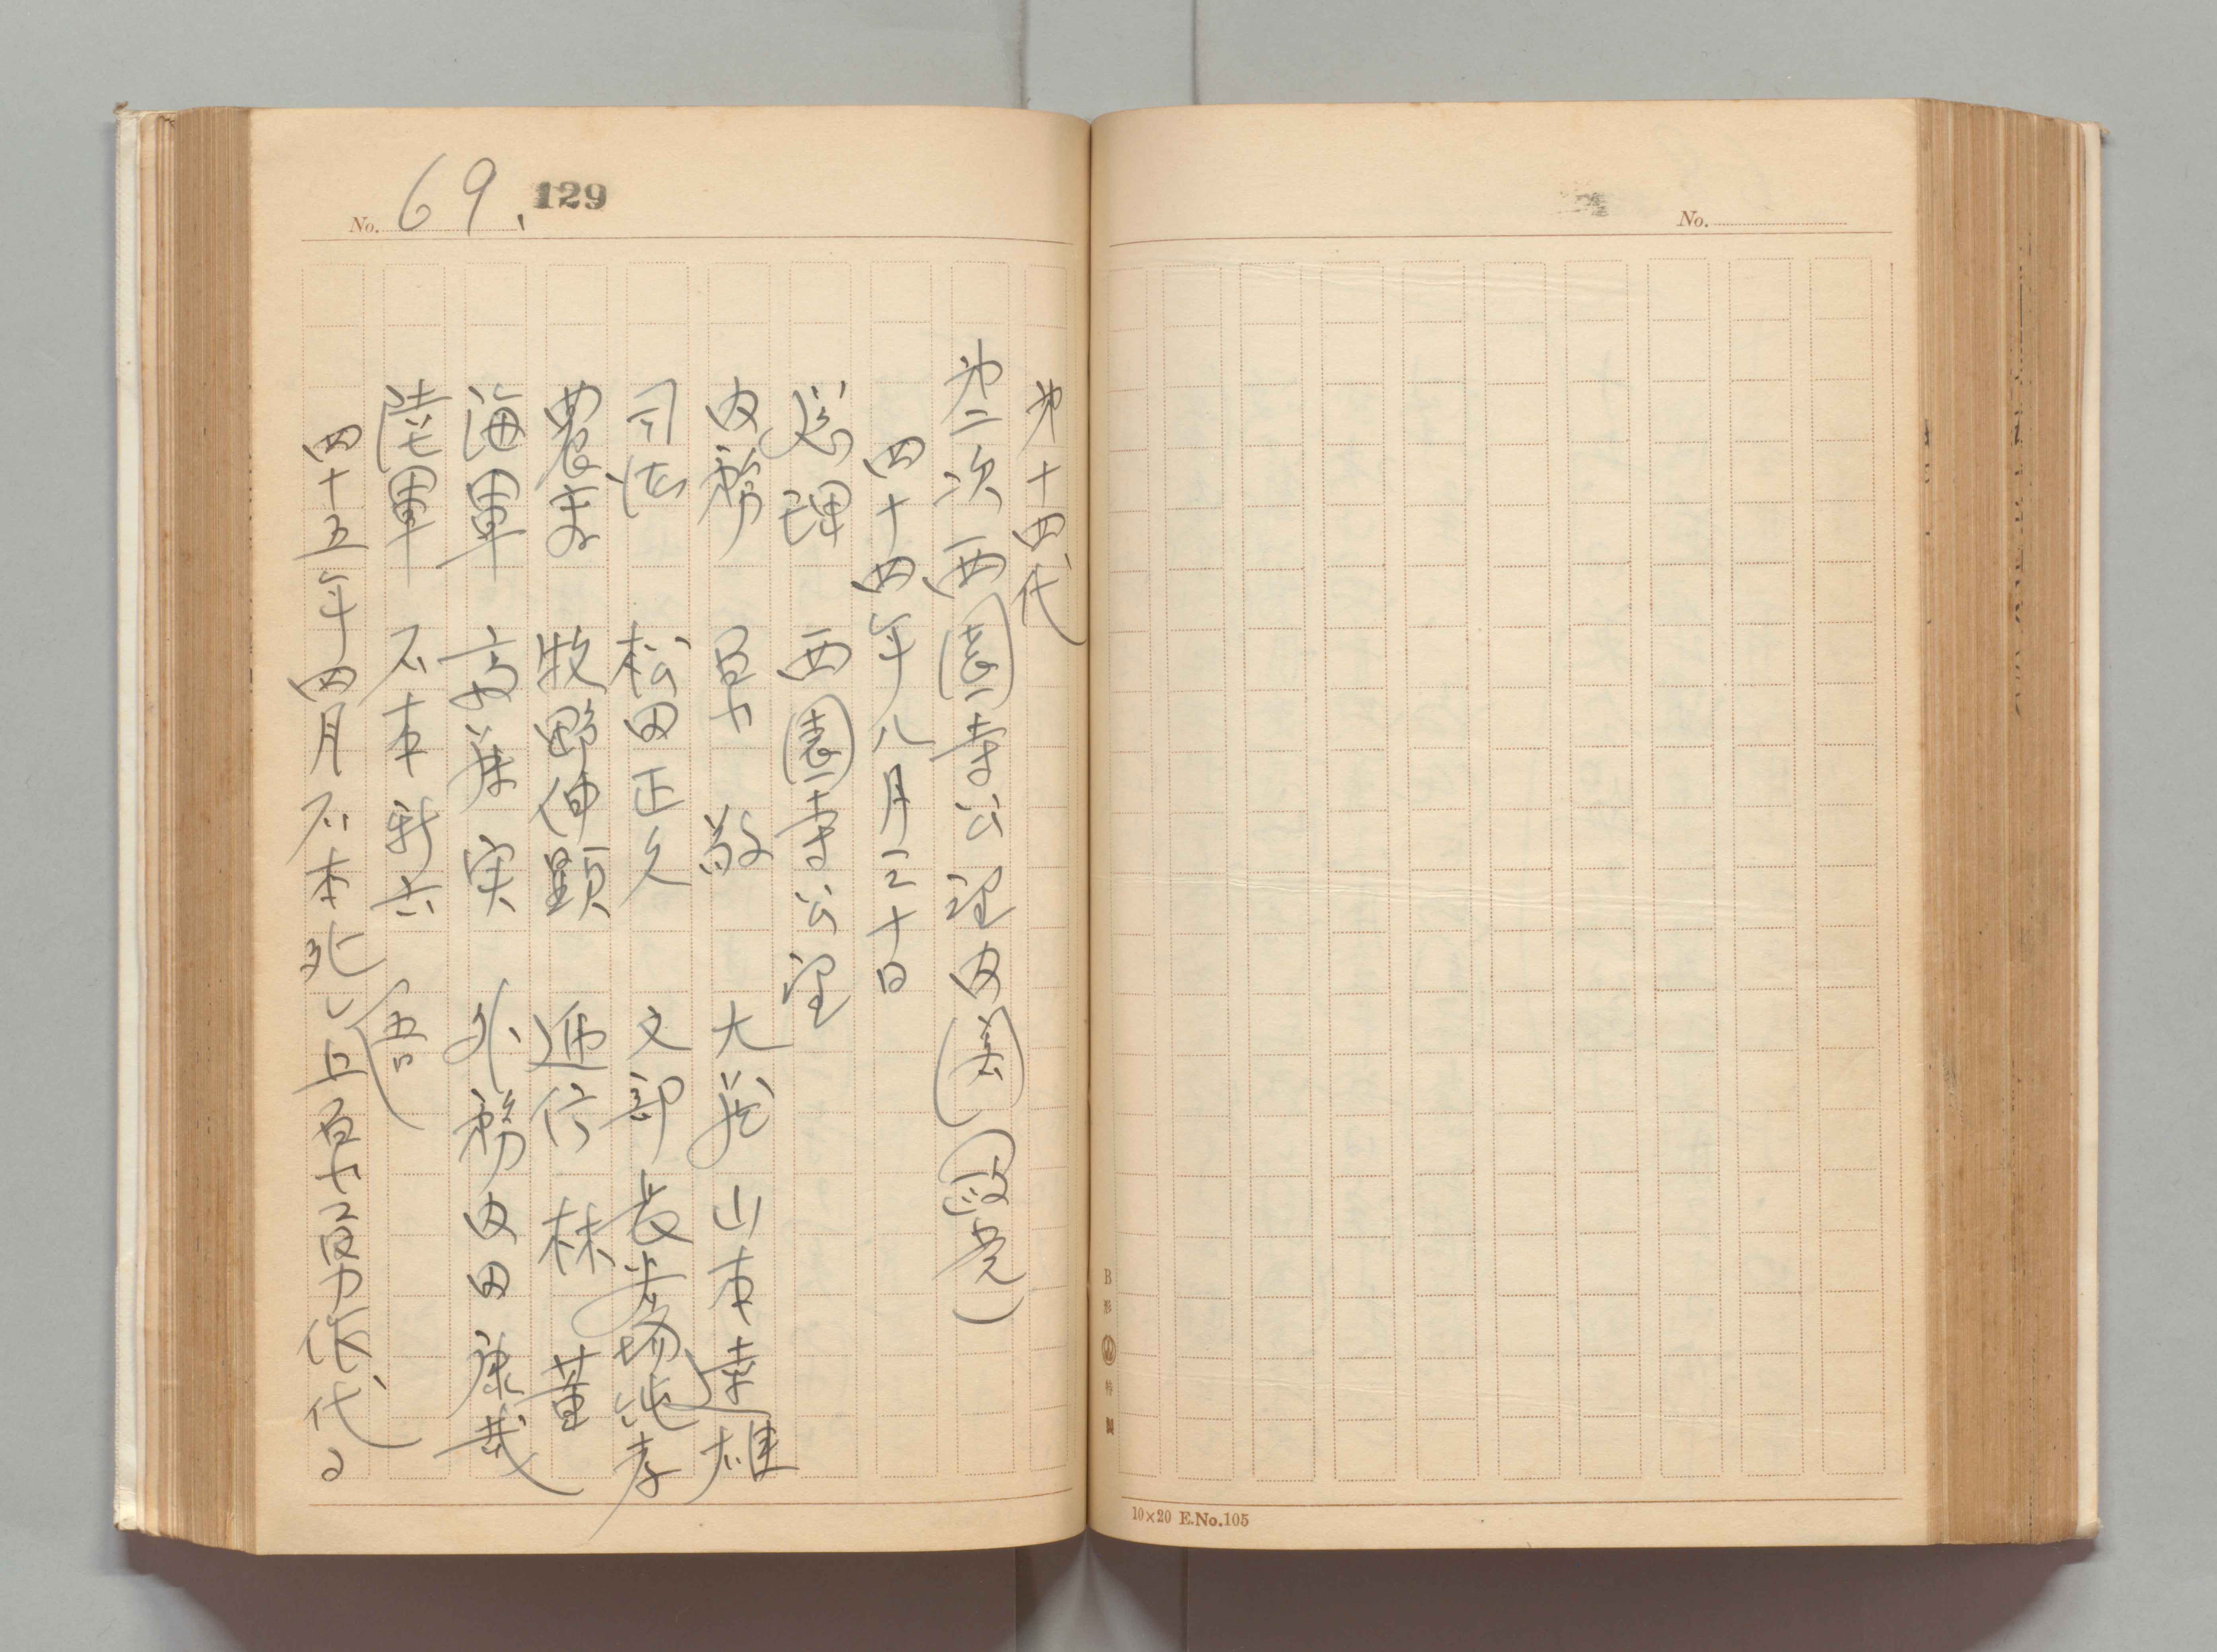 No.
B形 特製
10×20 E.No.105
No. 69. 129
第十四代
第二次西園寺公望内(美)(政党)
四十四年八月三十日
総理 西園寺公望
内務 原 敬 大蔵 山本達雄
司法 松田正久 文部 長谷場純孝
農商 牧野伸顕 逓信 林 董
海軍 斎藤 実 外務 内田康哉
陸軍 石本新六
四十五年四月石本死し上原勇作代る